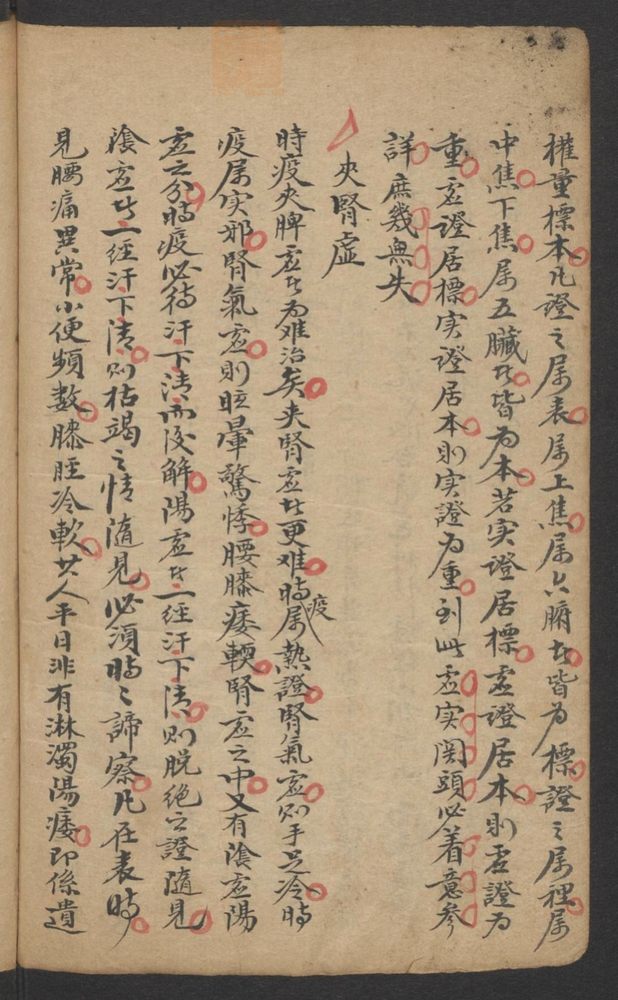 權量標本凡證之属表属上焦属六腑者皆为標證之属裡属
中焦下焦属五臟者皆为本若实證居標虚證居本則虚證为
重虚證居標实證居本則实證为重到此虚实関頭必着意參
詳庶幾無失
夾腎虛
時疫夾脾虚者为难治矣夹腎虚者更难時疫属熱證腎氣虚則手足冷時
疫属实邪腎氣虚則眩暈驚悸腰膝痿軟腎虚之中又有陰虚陽
虚之分時疫必待汗下清而後解陽虚者一经汗下清則脱绝之證隨見
陰虚者一经汗下清則枯竭之情隨見必須時〻諦察凡在表時
見腰痛異常小便頻數膝脛冷軟其人平日非有淋濁陽痿即係遺